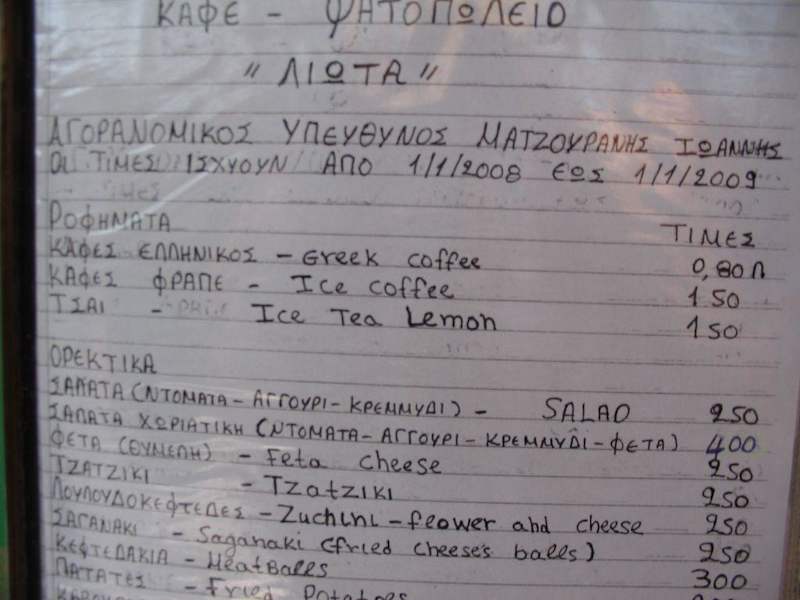 ΚΑΦΕ - ΨΗΤΟΠΩΛΕΙΟ
"ΛΙΩΤΑ"
ΑΓΟΡΑΝΟΜΙΚΟΣ ΥΠΕΥΘΥΝΟΣ ΜΑΤΖΟΥΡΑΝΗΣ ΙΩΑΝΝΗΣ
ΟΙ ΤΙΜΕΣ ΙΣΧΥΟΥΝ ΑΠΟ 1/1/2008 ΕΩΣ 1/1/2009
ΡΟΦΗΜΑΤΑ ΤΙΜΕΣ
ΚΑΦΕΣ ΕΛΛΗΝΙΚΟΣ - Greek coffee 0,80Λ
ΚΑΦΕΣ ΦΡΑΠΕ - Ice coffee 150
ΤΣΑΙ - Ice Tea Lemon 150
ΟΡΕΚΤΙΚΑ
ΣΑΛΑΤΑ (ΝΤΟΜΑΤΑ - ΑΓΓΟΥΡΙ - ΚΡΕΜΜΥΔΙ) - SALAD 250
ΣΑΛΑΤΑ ΧΩΡΙΑΤΙΚΗ (ΝΤΟΜΑΤΑ - ΑΓΓΟΥΡΙ - ΚΡΕΜΜΥΔΙ - ΦΕΤΑ) 400
ΦΕΤΑ (ΘΥΜΕΛΗ) - Feta cheese 250
ΤΖΑΤΖΙΚΙ - Tzatziki 250
ΛΟΥΛΟΥΔΟΚΕΦΤΕΔΕΣ - Zuchini - flower and cheese 250
ΣΑΓΑΝΑΚΙ - Saganaki (fried cheese's balls) 250
ΚΕΦΤΕΔΑΚΙΑ - Meatballs 300
ΠΑΤΑΤΕΣ - Fried Potatoes